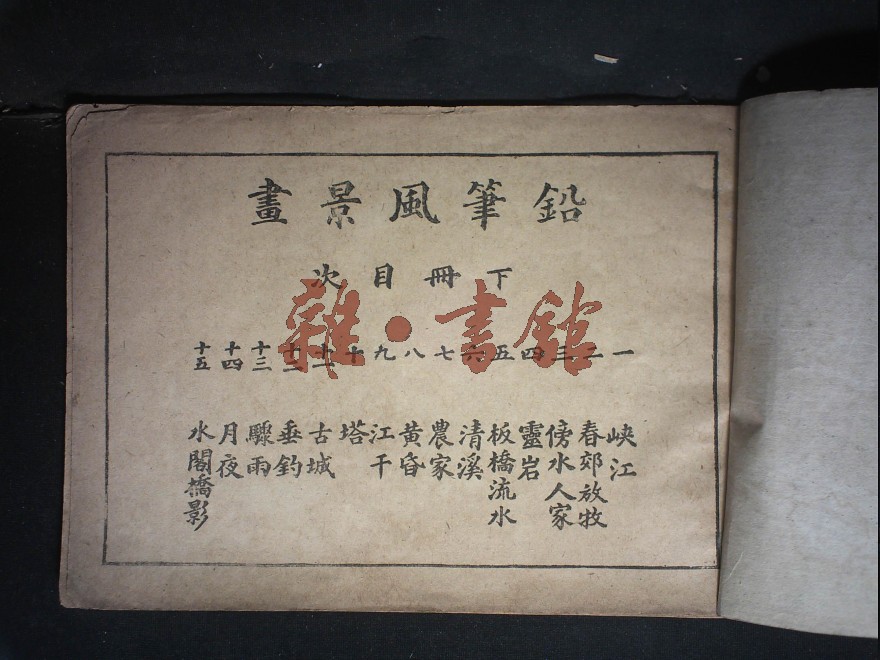 鉛筆風景畫
下冊目次
雜・書館
一 峽江
二 春郊放牧
三 傍水人家
四 靈岩
五 板橋流水
六 清溪
七 農家
八 黃昏
九 江干
十 塔
十一 古城
十二 垂釣
十三 驟雨
十四 月夜
十五 水閣橋影